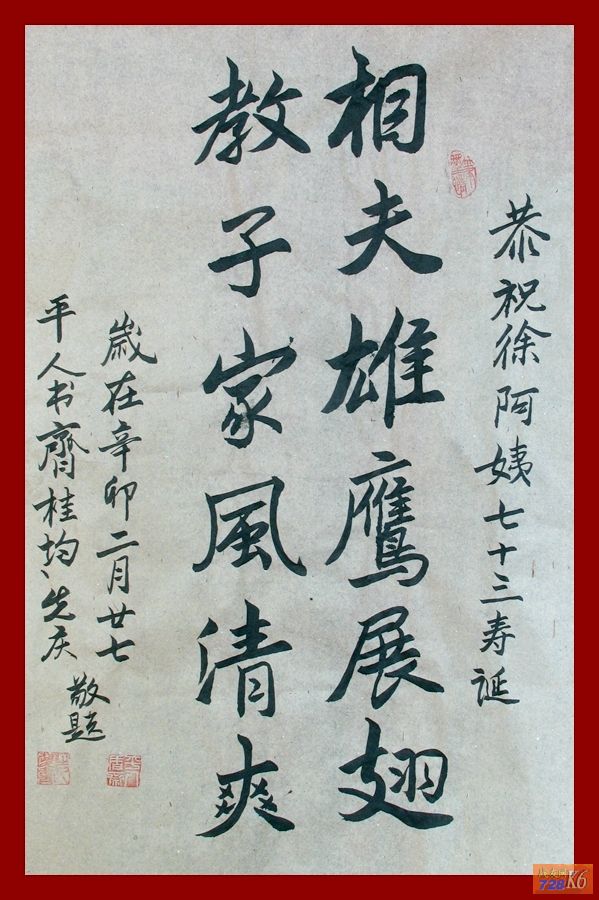 恭祝徐阿姨七十三寿诞
相夫雄鹰展翅
教子家風清爽
歲在辛卯二月廿七
平人书齋桂均、先庆
敬题
728K6